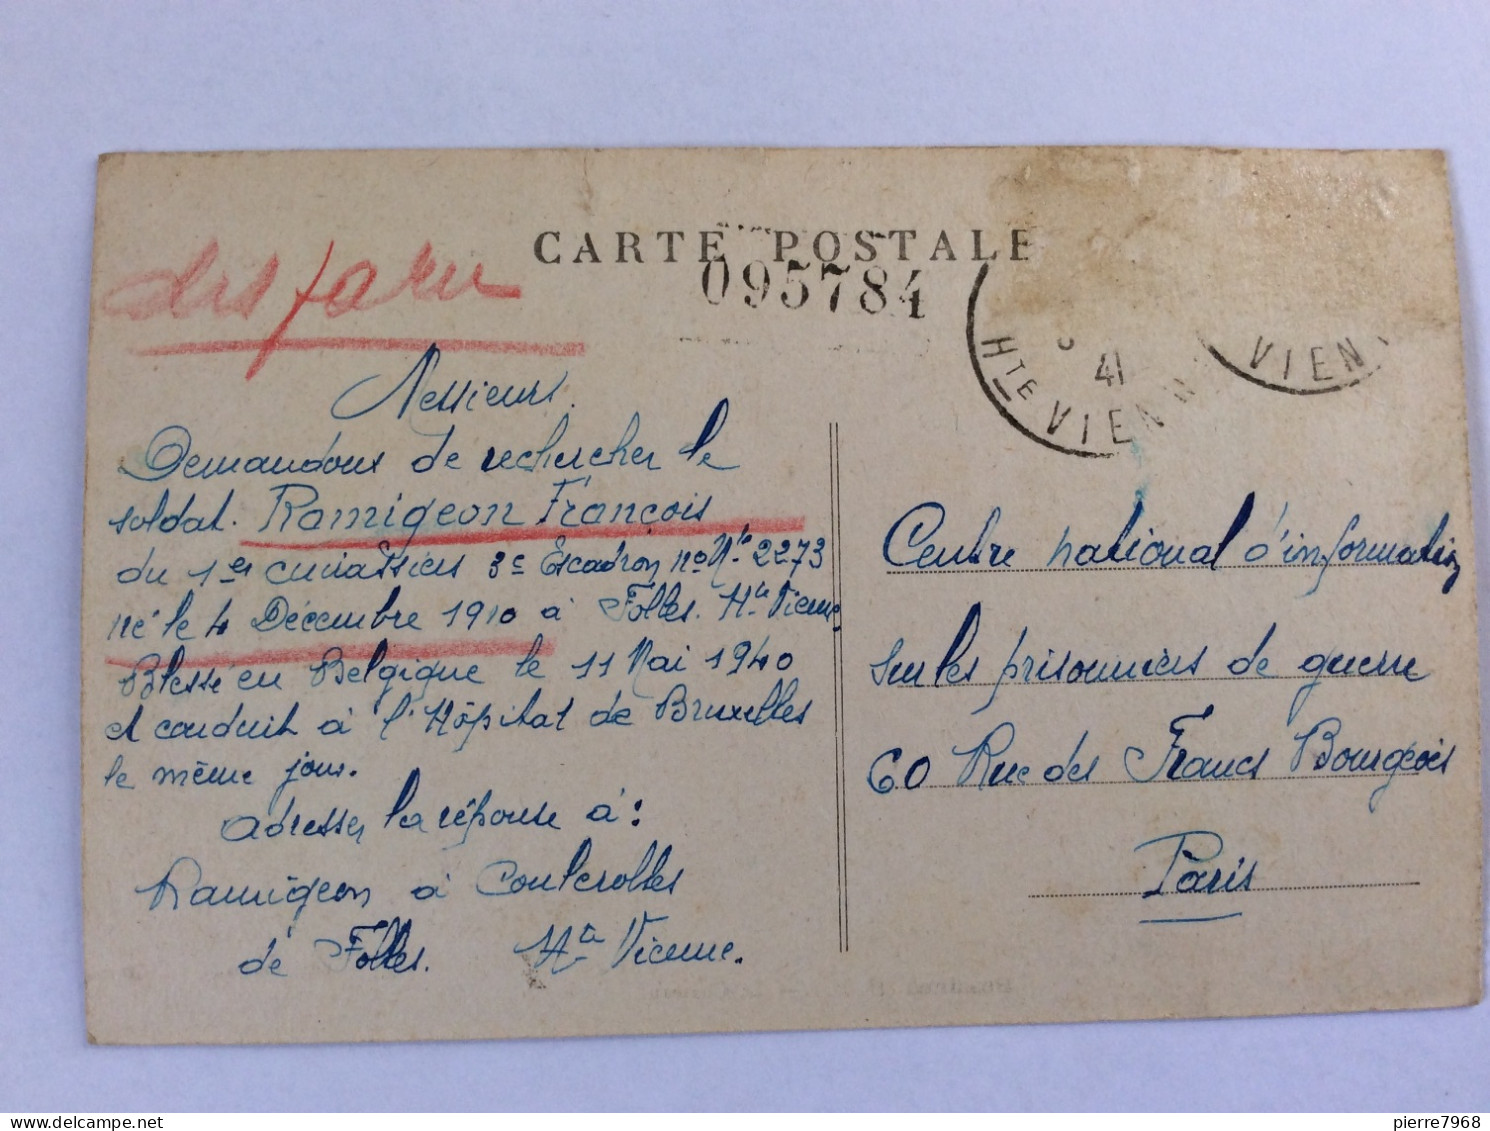 CARTE POSTALE
095784
disparu
41
Hte VIENN
VIEN
Messieurs.
Demandons de rechercher le
soldat. Ramigeon François
du 1er cuirassiers 3e Escadron no Mle 2273
né le 4 Décembre 1910 à Folles. Hte Vienne
Blessé en Belgique le 11 Mai 1940
et conduit à l'Hôpital de Bruxelles
le même jour.
adresser la réponse à :
Ramigeon à Conlerolles
de Folles. Hte Vienne.
Centre national d'information
sur les prisonniers de guerre
60 Rue des Francs Bourgeois
Paris
pierre7968